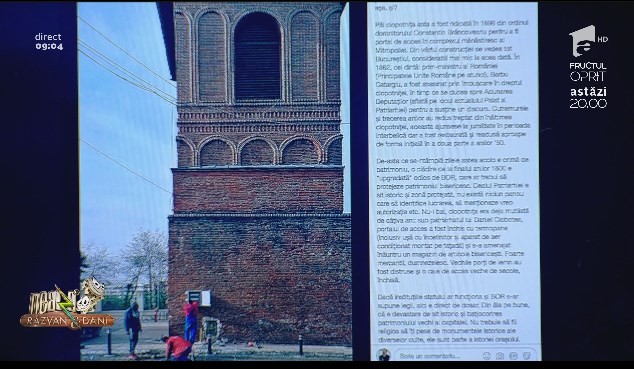 direct
09:04
HD
FRUCTUL
OPRIT
astăzi
20.00
NEATZA
RĂZVAN & DANI
Păi clopotnița asta a fost ridicată în 1698 din ordinul
domnitorului Constantin Brâncoveanu pentru a fi
portal de acces în complexul mănăstiresc al
Mitropoliei. Din vârful construcției se vedea tot
Bucureștiul, considerabil mai mic la acea dată. În
1862, cel dintâi prim-ministru al României
(Principatele Unite Române pe atunci), Barbu
Catargiu, a fost asasinat prin împușcare în dreptul
clopotniței, în timp ce se ducea spre Adunarea
Deputaților (aflată pe locul actualului Palat al
Patriarhiei) pentru a susține un discurs. Cutremurele
și trecerea anilor au redus treptat din înălțimea
clopotniței, aceasta ajunsese la jumătate în perioada
interbelică dar a fost restaurată și readusă aproape
de forma inițială în a doua parte a anilor '50.
De-asta ce se-ntâmplă zilele astea acolo e crimă de
patrimoniu, o clădire de la finalul anilor 1600 e
"upgradată" odios de BOR, care ar trebui să
protejeze patrimoniul bisericesc. Dealul Patriarhiei e
sit istoric și zonă protejată, nu există niciun panou
care să identifice lucrarea, să menționeze vreo
autorizația etc. Nu-i bai, clopotnița era deja mutilată
de câțiva ani: sub patriarhatul lui Daniel Ciobotea,
portalul de acces a fost închis cu termopane
(inclusiv ușă cu încetinitor și aparat de aer
condiționat montat pe fațadă) și s-a amenajat
înăuntru un magazin de articole bisericești. Foarte
mercantil, dumnezeiesc. Vechile porți de lemn au
fost distruse și o cale de acces veche de secole,
închisă.
Dacă instituțiile statului ar funcționa și BOR s-ar
supune legii, aici e direct de dosar. Din ăla pe bune,
că e devastare de sit istoric și batjocorirea
patrimoniului vechi al capitalei. Nu trebuie să fii
religios să îți pese de monumentele istorice ale
diverselor culte, ele sunt parte a istoriei orașului.
Scrie un comentariu...